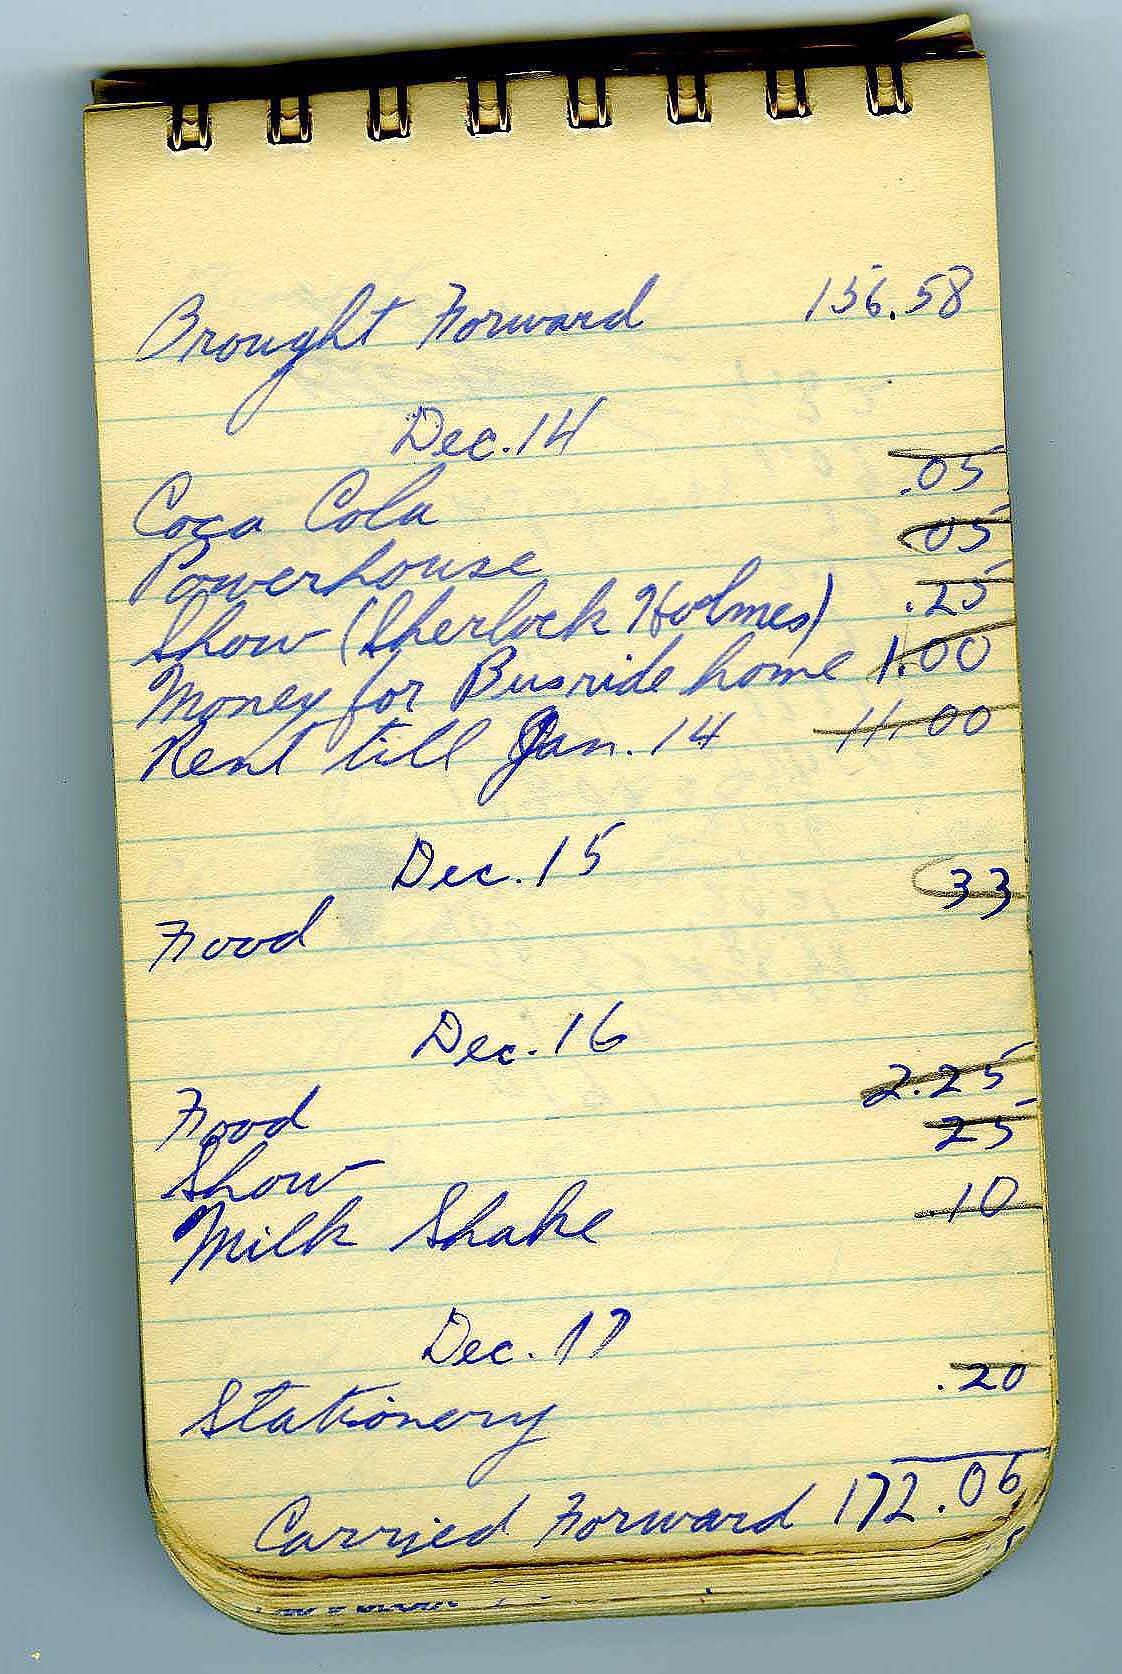 Brought Forward 156.58
Dec. 14
Coca Cola .05
Powerhouse 05
Show (Sherlock Holmes) .25
Money for Busride home 1.00
Rent till Jan. 14 11.00
Dec. 15
Food 33
Dec. 16
Food 2.25
Show 25
Milk Shake .10
Dec. 17
Stationery .20
Carried Forward 172.06